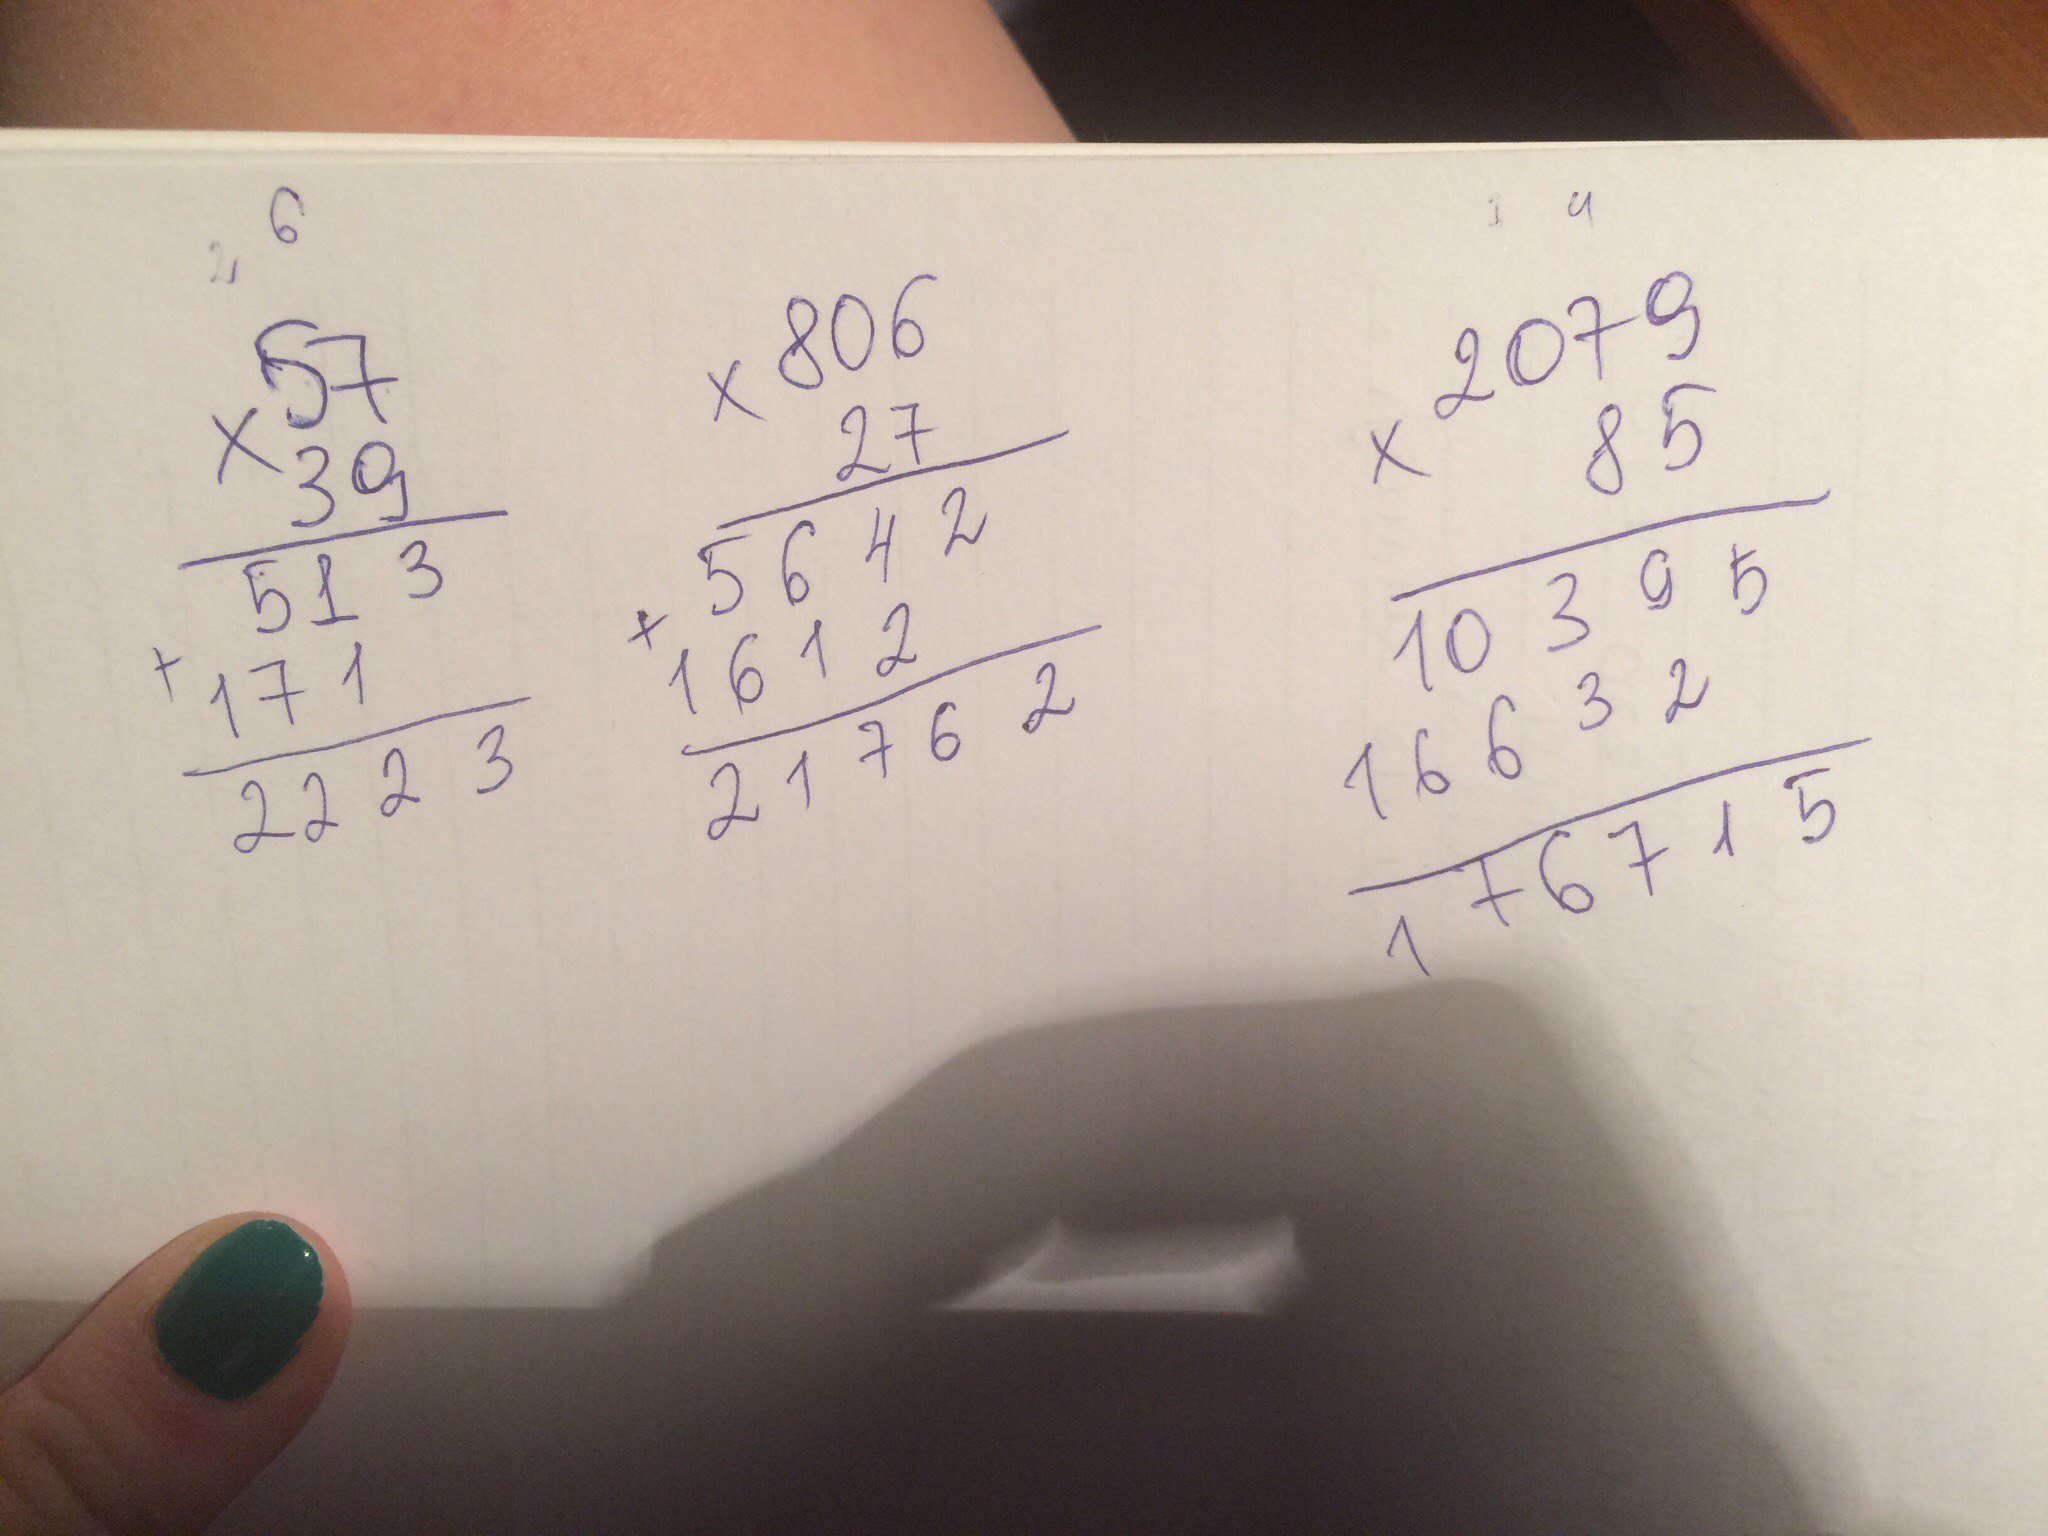 2 6
57
× 39
513
+ 171
2223
806
× 27
5642
+ 1612
21762
3 4
2079
× 85
10395
16632
176715